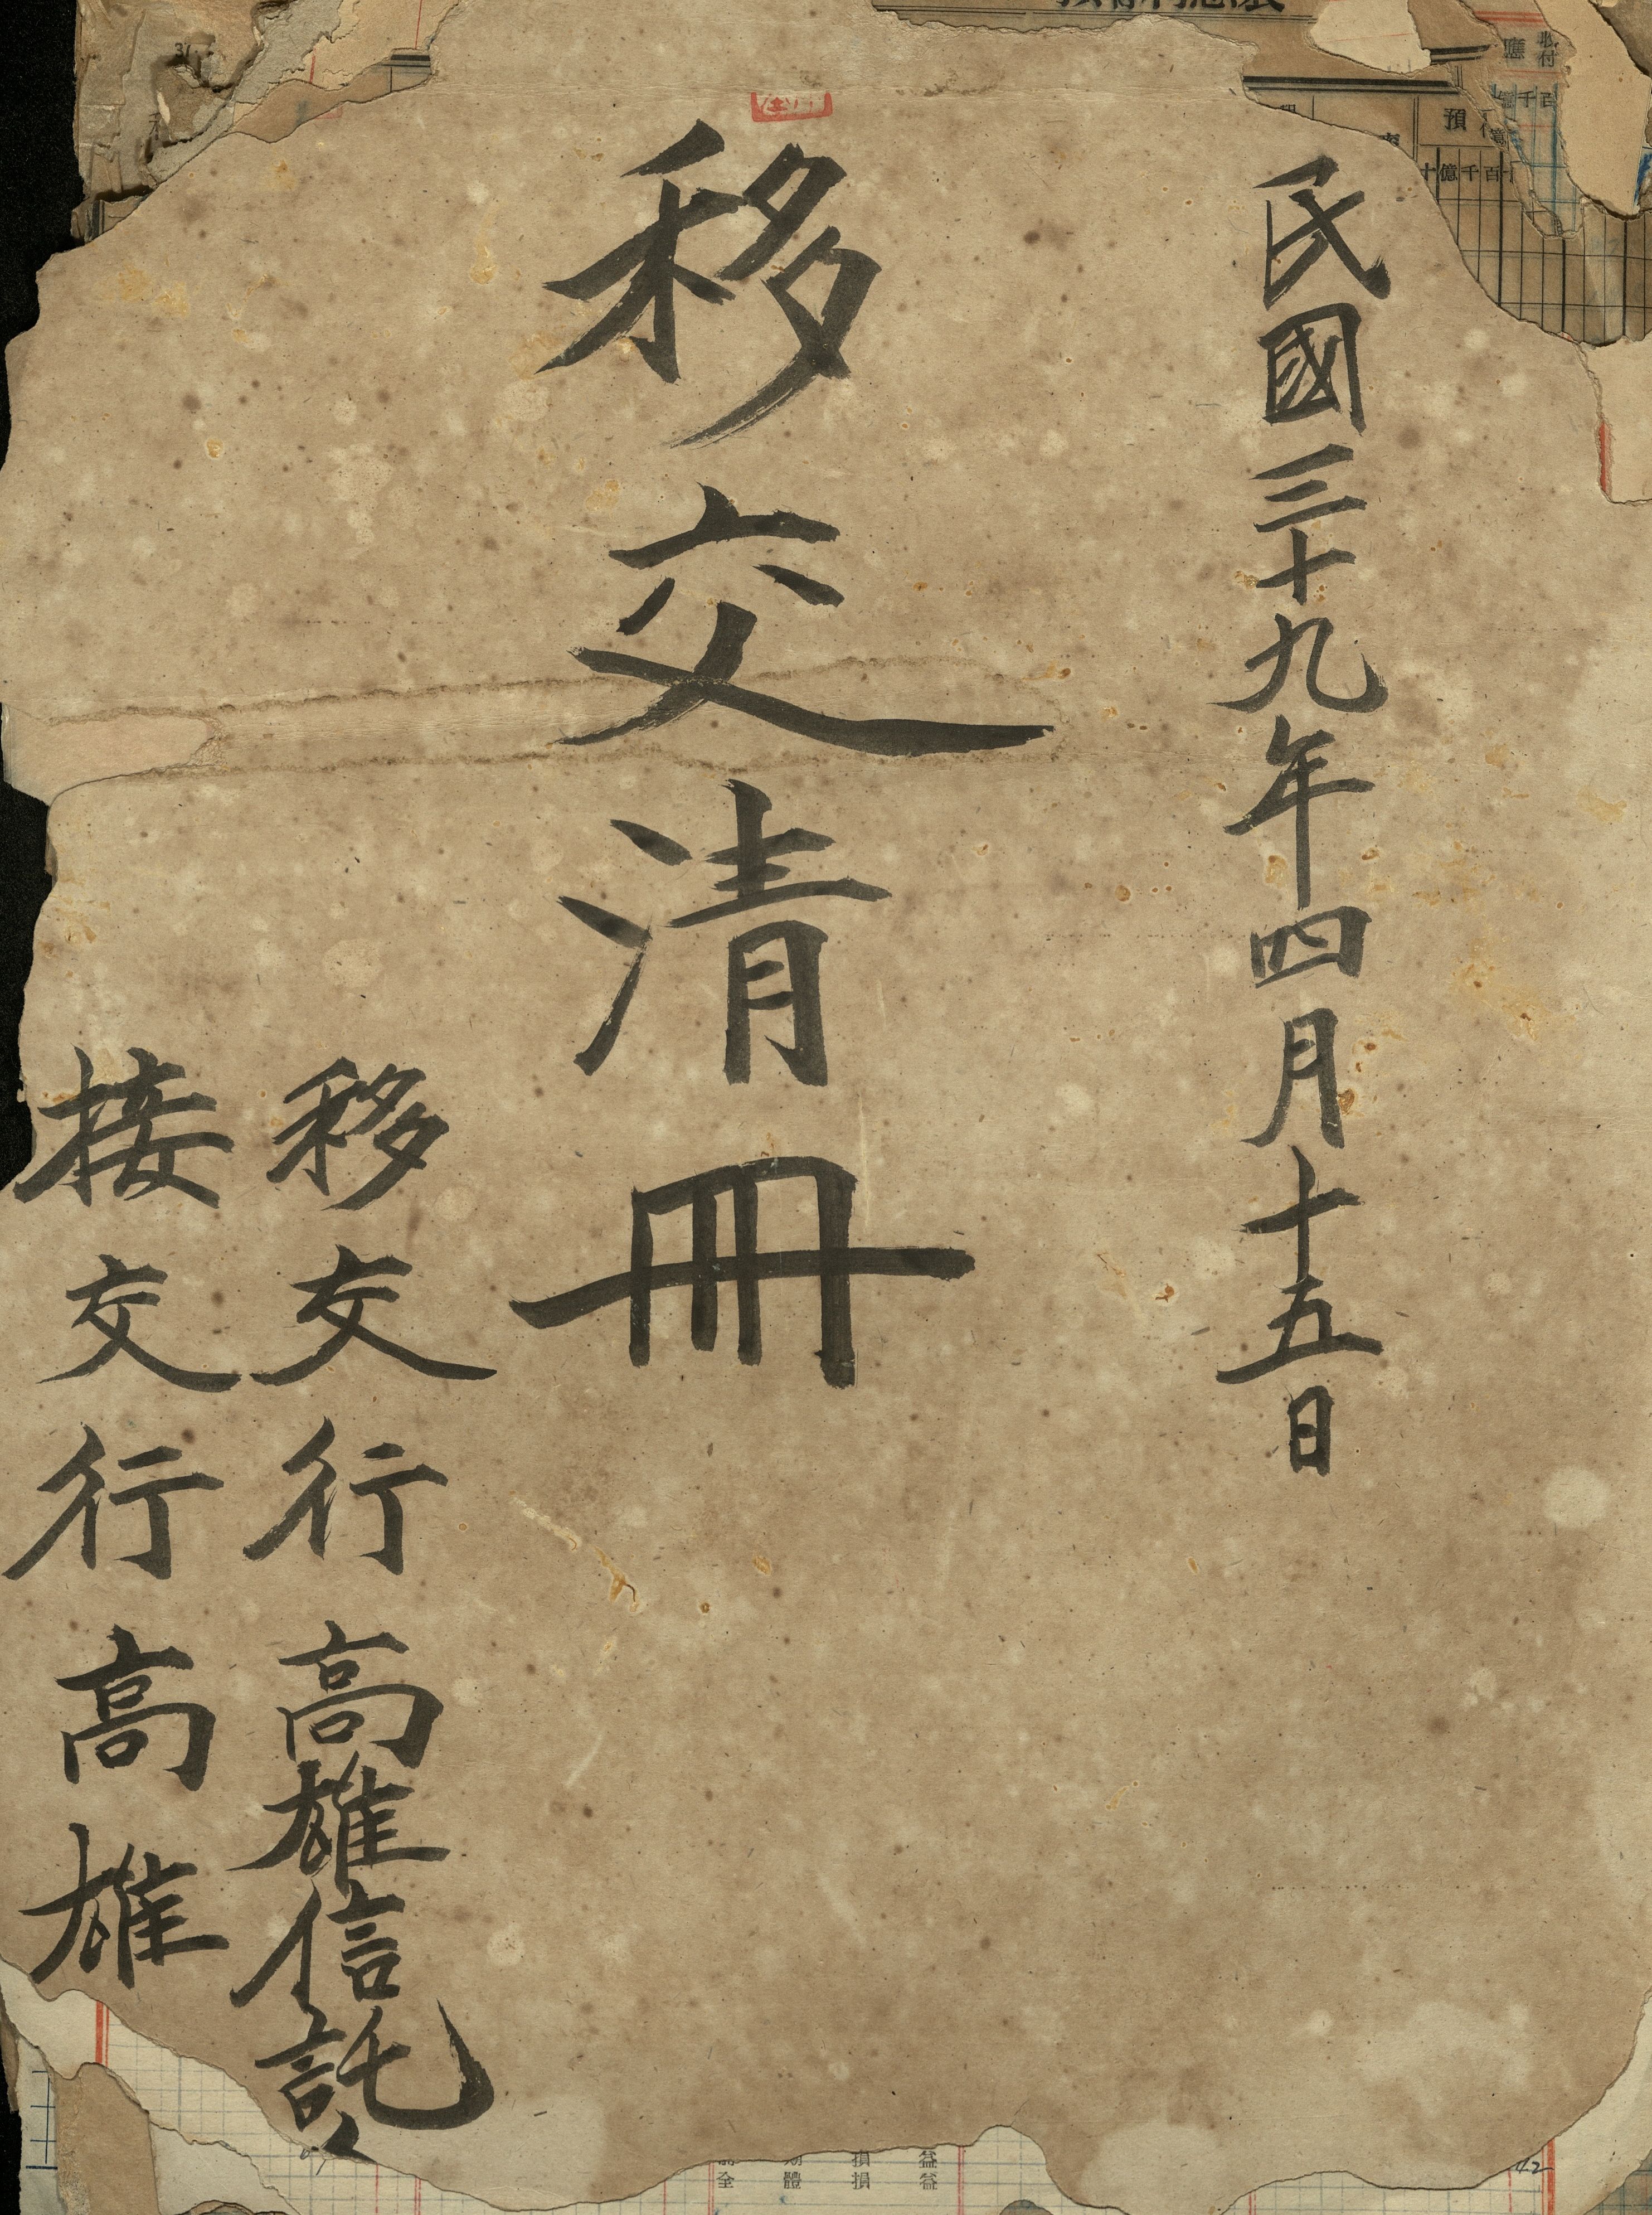 民國三十九年四月十五日
移交清冊
移交行高雄信託
接交行高雄